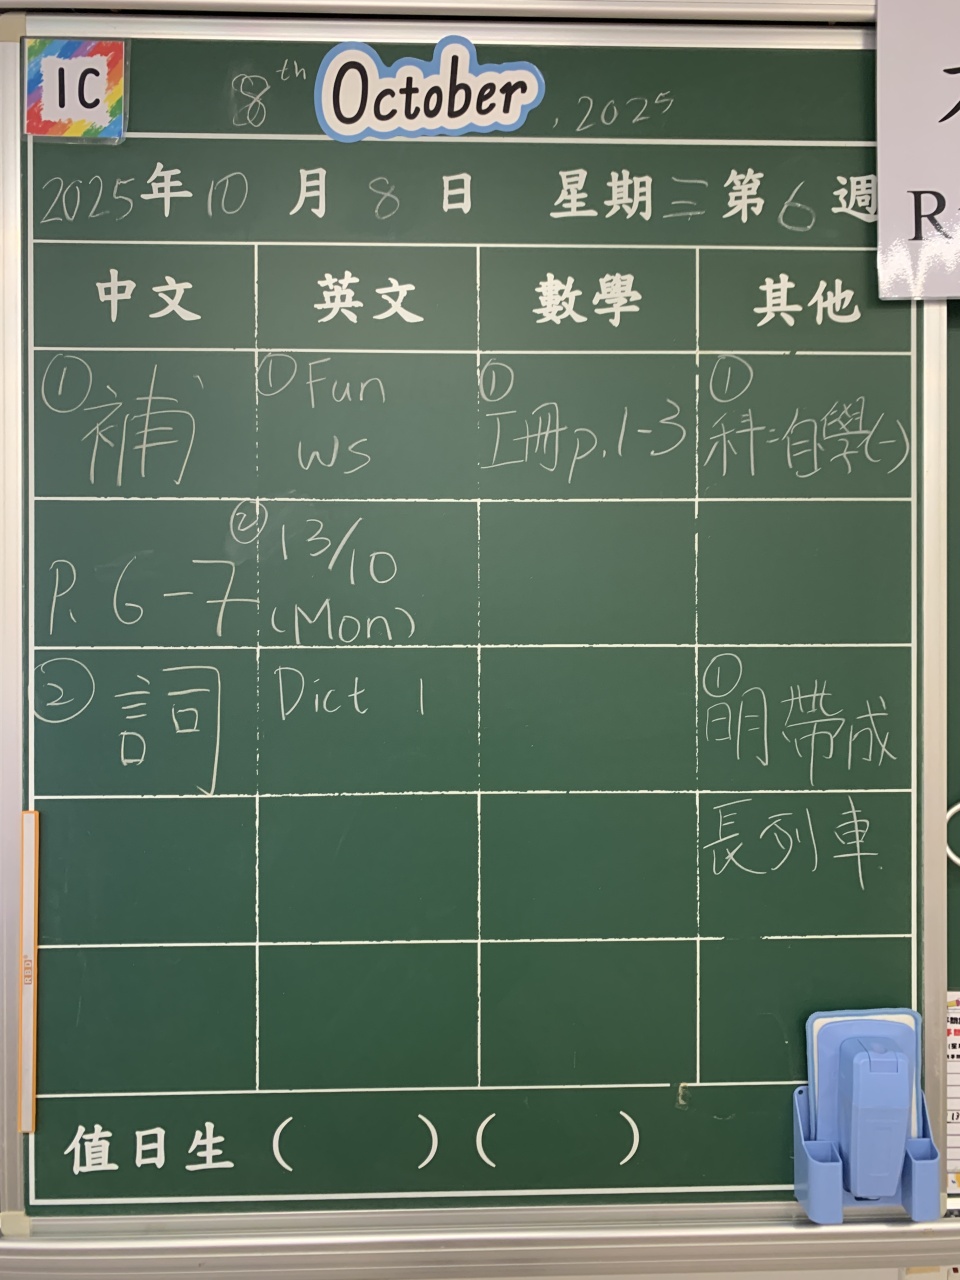 1C
8th October, 2025
2025年10月8日 星期三第6週
中文 英文 數學 其他
①補 ①Fun WS ①工冊p.1-3 ①科:自學(一)
P.6-7 ②13/10 (Mon)
②詞 Dict 1 ①明帶成
長列車
值日生( )( )
R